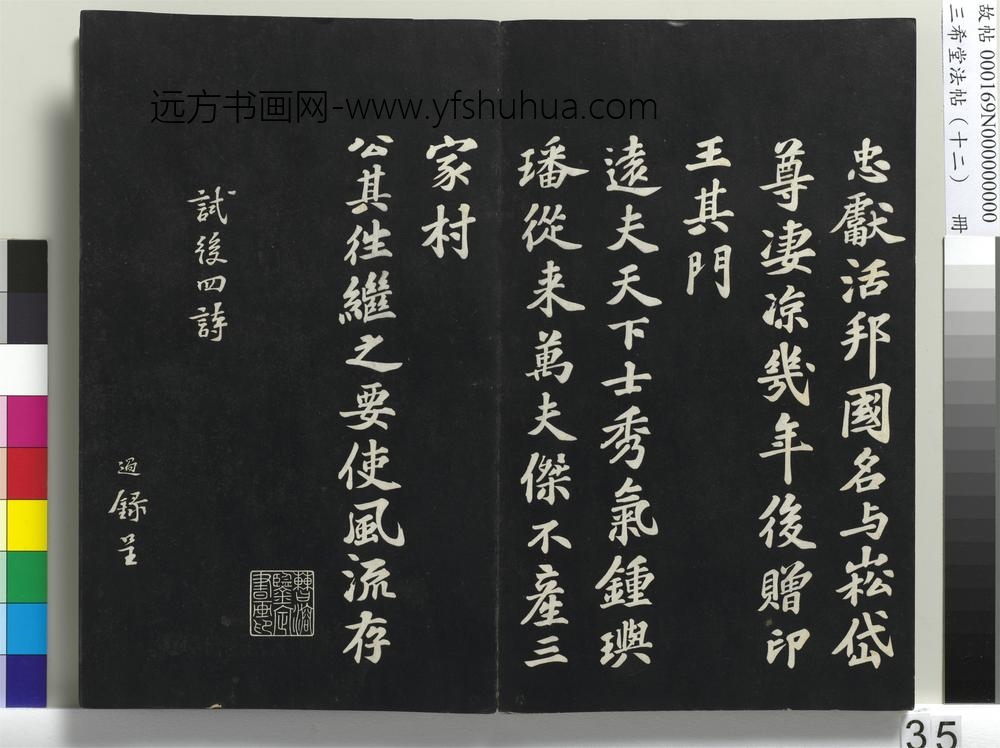 忠獻活邦國名与崧岱
尊凄凉幾年後贈印
王其門
遠夫天下士秀氣鍾璵
璠從来萬夫傑不產三
家村
公其徃繼之要使風流存
試後四詩
過録呈
曹溶
鑒定
書画印
远方书画网-www.yfshuhua.com
故帖 000169N000000000
三希堂法帖(十二) 冊
35